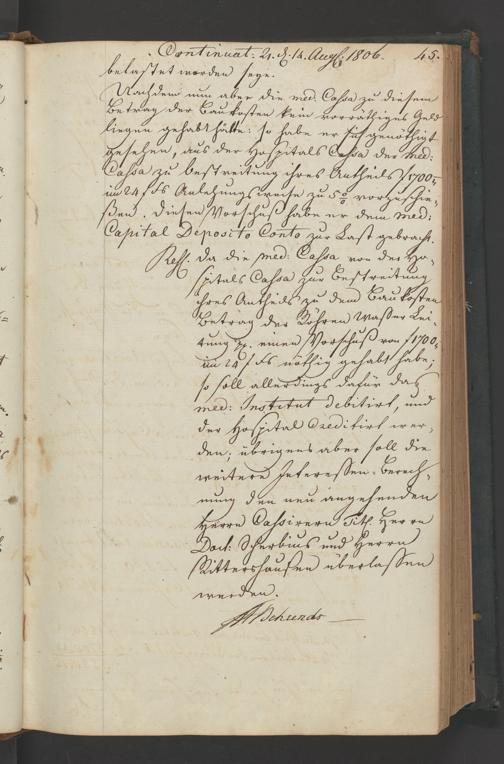 Continuat: 21. d. 14. Aug: 1806. 45.
belastet worden seye.
Nachdem nun aber die med. Cassa zu diesem
Betrag der Baukosten kein vorräthiges Geld
liegen gehabt hätte: so habe er sich genöthigt
gesehen, aus der Hospitals Cassa der med:
Cassa zu bestreitung ihres Antheils f 1700,,
im 24 f Fs Anlehungsweise zu 5 % vorzuschie-
ßen. Diesen Vorschuß habe er dem med:
Capital Deposito Conto zur Last gebracht.
Res: da die med: Cassa von der Ho-
spitals Cassa zur Bestreitung
ihres Antheils zu dem Baukosten
Betrag der Röhren Wasser Lei-
tung pp. einen Vorschuß von f 1700,,
im 24 f Fs nöthig gehabt habe;
so soll allerdings dafür das
med: Institut debitirt, und
der Hospital Creditirt wer-
den; übrigens aber soll die
weitere Interessen-Berech-
nung den neu angehenden
Herrn Cassirern Tit. Herrn
Doct: Scherbius und Herrn
Rittershausen überlassen
werden.
Behrends